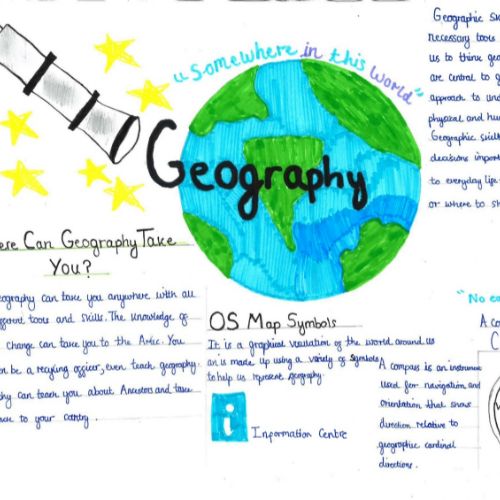 Geographic Sk
necessary tools
us to think geo
are central to g
approach to und
physical and hu
Geographic skills
decisions impor
to everyday life
or where to sh
"Somewhere in this World"
Geography
ere Can Geography Take
You?
eography can take you anywhere with all
fferent tools and skills. The knowledge of
change can take you to the Artic. You
n be a recyling officer, even teach geography.
phy can teach you about Ancestors and take
ack to your
OS Map Symbols
It is a graphical of the world around us
an is made up using a variety of symbols
to help us represent geography.
i
Information Centre
"No co
A co
C
A compass is an instrumen
used for navigation and
orientation that shows
direction relative to
geographic cardinal
directions.